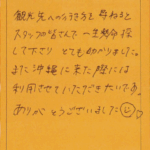 観光先への行き方を尋ねると
スタッフの皆さんで一生懸命探
して下さりとても助かりました。
また沖縄に来た際には
利用させていただきたいです。
ありがとうございました